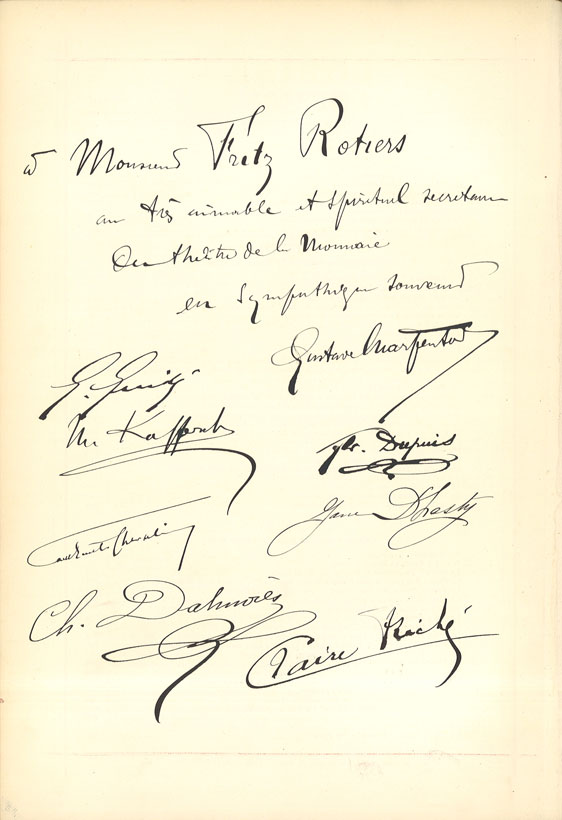 à Monsieur Fritz Rotiers
au très aimable et spirituel secrétaire
du théâtre de la Monnaie
en sympathique souvenir
Gustave Charpentier
G. Guidé
M. Kufferath
Sylv. Dupuis
Jane D'Hasty
Ch. Dalmorès
Claire Friché